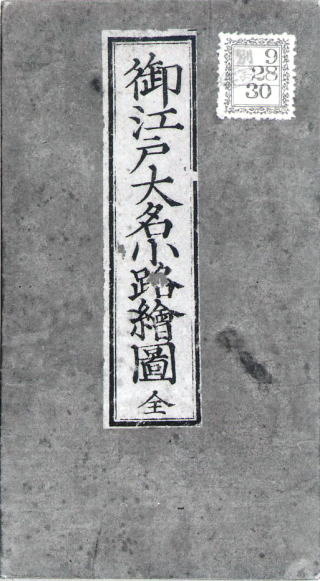 御江戸大名小路繪圖
全
9
28
30